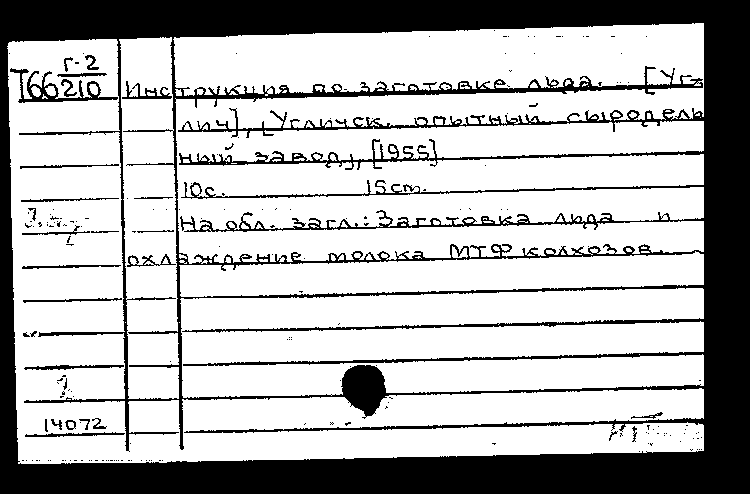 Г-2
Т66 210 Инструкция по заготовке льда. [Уг-
лич], [Угличск. опытный сыродель
ный завод], [1955]
10с. 15см.
На обл. загл.: Заготовка льда и
охлаждение молока МТФ колхозов.
2
14072